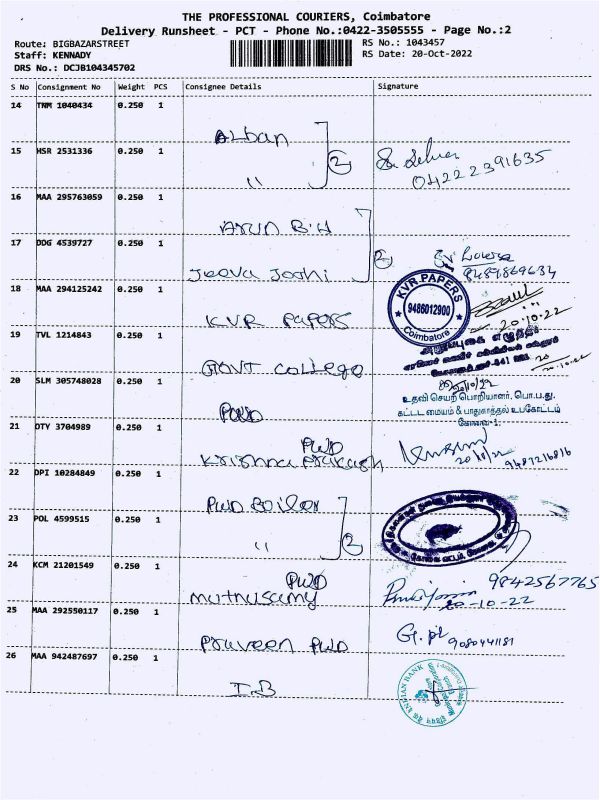 THE PROFESSIONAL COURIERS, Coimbatore
Delivery Runsheet - PCT - Phone No.:0422-3505555 - Page No.:2
Route: BIGBAZARSTREET
RS No.: 1043457
Staff: KENNADY
RS Date: 20-Oct-2022
DRS No.: DCJB104345702
S No Consignment No Weight PCS Consignee Details Signature
14 TNM 1040434 0.250 1
Alban
15 HSR 2531336 0.250 1
" 2
04222391635
16 MAA 295763059 0.250 1
Arun B.H
17 DDG 4539727 0.250 1
Jeeva Joshi 2
9489869634
18 MAA 294125242 0.250 1
KVR PAPERS
KVR PAPERS
9486012900
Coimbatore
20-10-22
19 TVL 1214843 0.250 1
GOVT College
20-10-22
20 SLM 305748028 0.250 1
PWD
20/10/22
உதவி செயற் பொறியாளர், பொ.ப.து.
கட்டட மையம் & பாதுகாத்தல் உபகோட்டம்
கோவை-1.
21 OTY 3704989 0.250 1
PWD
Krishna Prakash
20/10/22
9487216816
22 DPI 10284849 0.250 1
PWD Boiler
23 POL 4599515 0.250 1
" 2
24 KCM 21201549 0.250 1
PWD
Muthusamy
9842567765
20-10-22
25 MAA 292550117 0.250 1
Praveen PWD
9080441181
26 MAA 942487697 0.250 1
I.B
INDIAN BANK